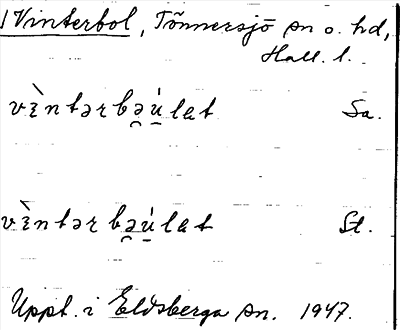 Vinterbol, Tönnersjö sn o. hd,
Hall. l.
vὲ̀ntərbə̯ú̠lat Sa.
vὲ̀ntərbə̯ú̠lat St.
Uppt. i Eldsberga sn. 1947.